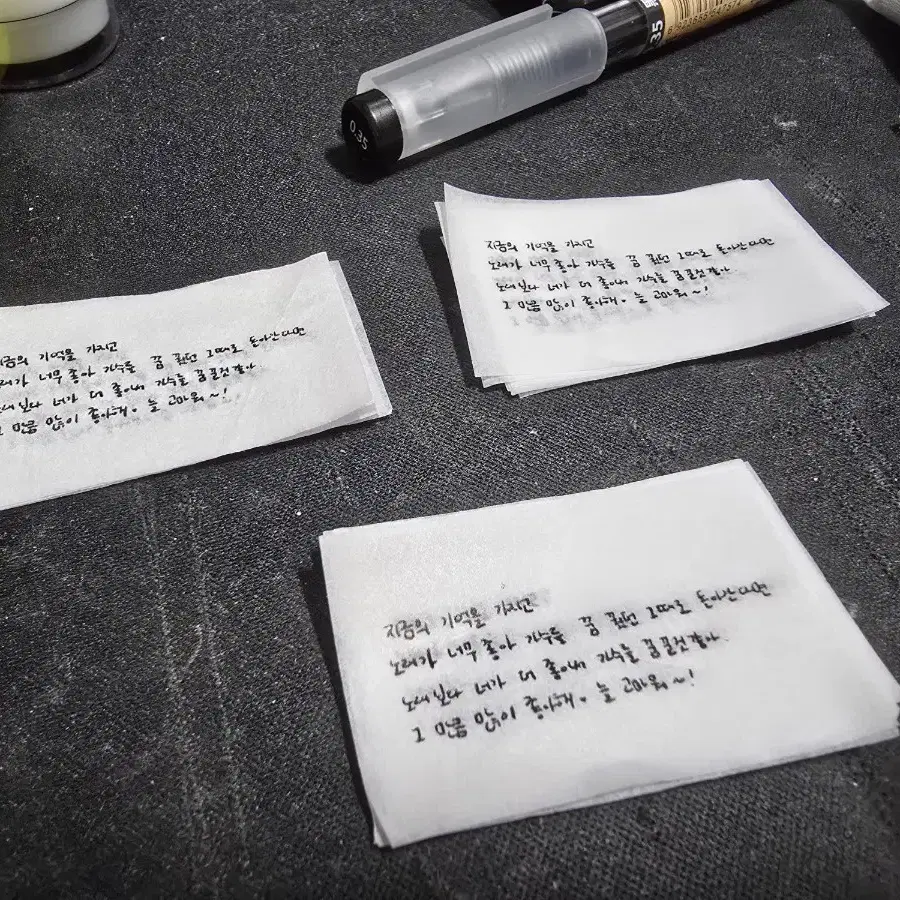 0.35
35
지금의 기억을 가지고
노래가 너무 좋아 가수를 꿈 꿨던 그때로 돌아간다면
노래보다 너가 더 좋아서 가수를 꿈꿀것 같아.
그 만큼 많이 좋아해. 늘 고마워~!
지금의 기억을 가지고
너무 좋아 가수를 꿈 꿨던 그때로 돌아간다면
너가 더 좋아서 가수를 꿈꿀것 같아.
만큼 많이 좋아해. 늘 고마워~!
지금의 기억을 가지고
노래가 너무 좋아 가수를 꿈 꿨던 그때로 돌아간다면
노래보다 너가 더 좋아서 가수를 꿈꿀것 같아.
그 만큼 많이 좋아해. 늘 고마워~!